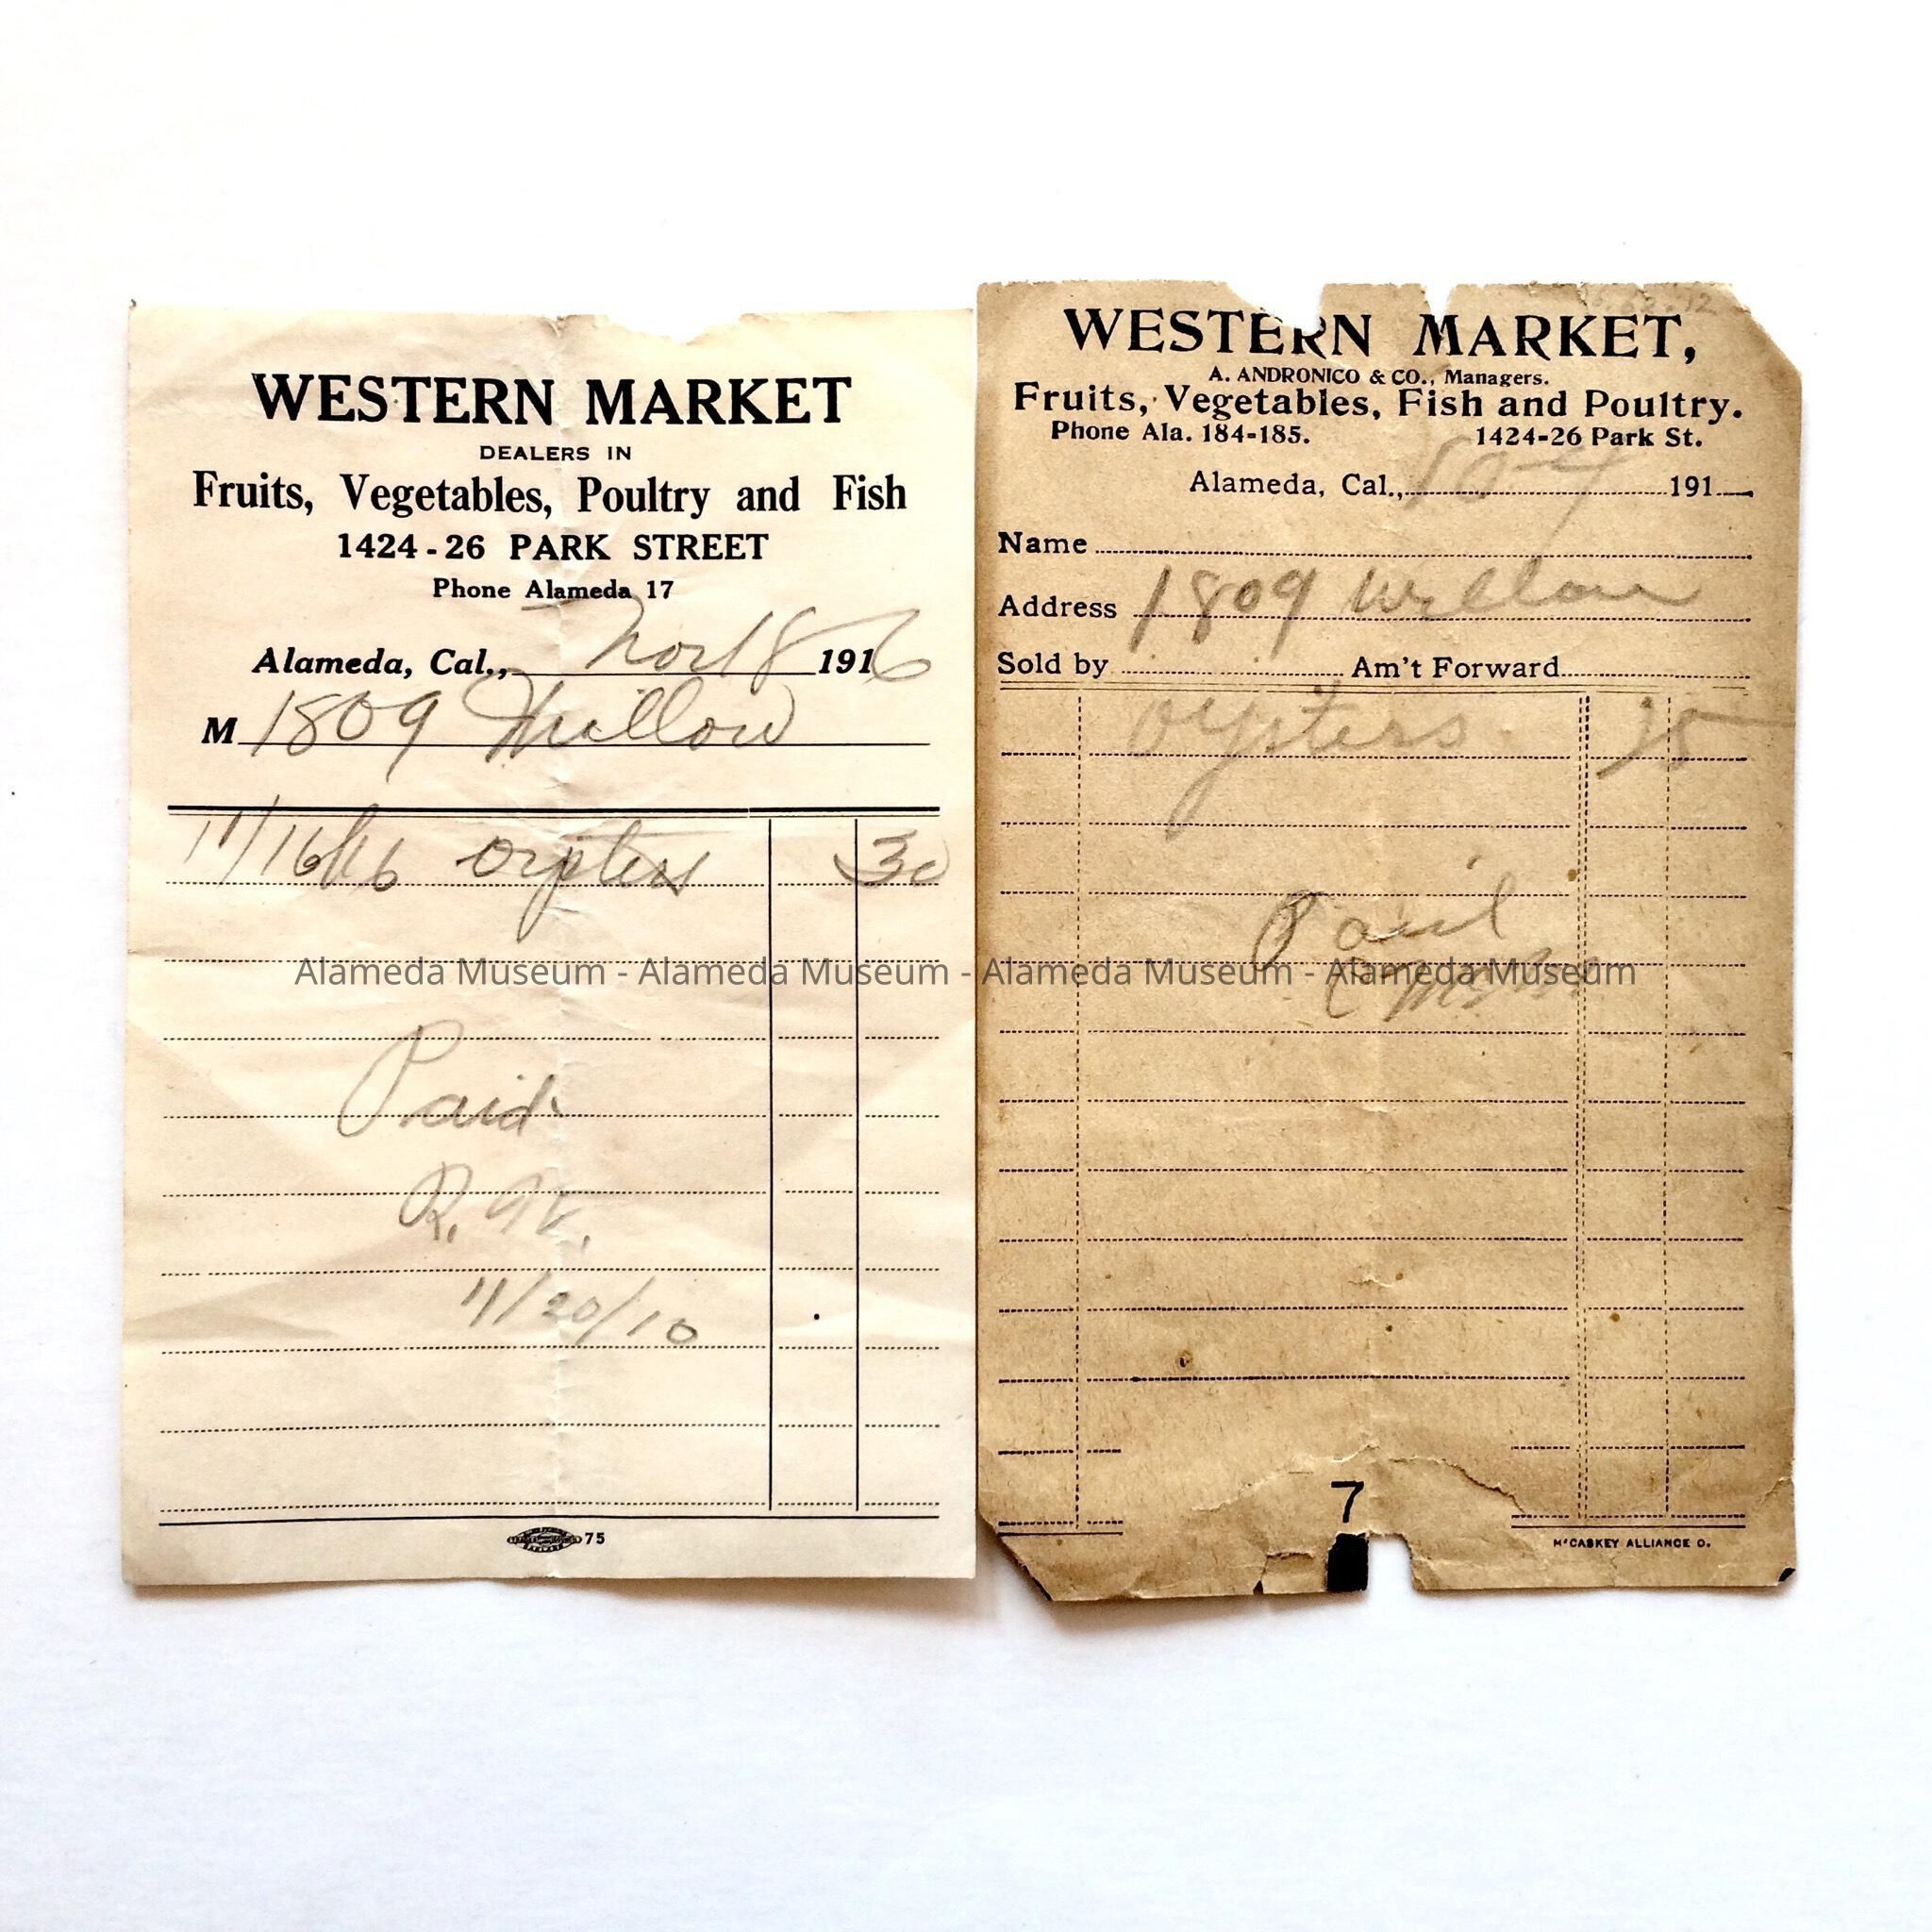 WESTERN MARKET
DEALERS IN
Fruits, Vegetables, Poultry and Fish
1424-26 PARK STREET
Phone Alameda 17
Alameda, Cal., Nov 18 1916
M 1809 Willow
11/16/16 oysters 30
Paid
R.
11/20/10
75
WESTERN MARKET,
A. ANDRONICO & CO., Managers.
Fruits, Vegetables, Fish and Poultry.
Phone Ala. 184-185. 1424-26 Park St.
Alameda, Cal., 191
Name
Address 1809 Willow
Sold by Am't Forward
oysters
Paid
7
McCASKEY ALLIANCE O.
Alameda Museum - Alameda Museum - Alameda Museum - Alameda Museum